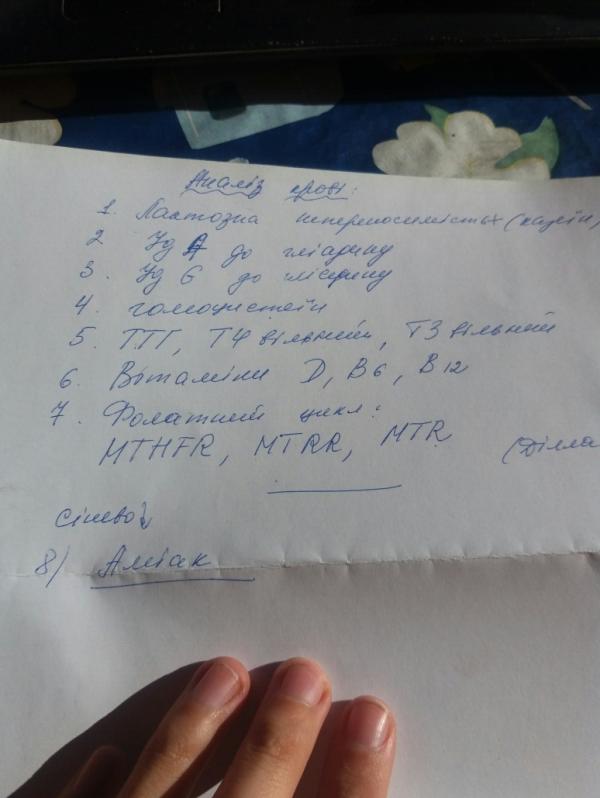 Аналіз крові:
1. Лактозна непереносимість (казеїн,
2 Ig A до гліадину
3. Ig G до гліадину
4. гомоцистеїн
5. ТТГ, Т4 вільний, Т3 вільний
6. Вітаміни D, B6, B12
7. Фолатний цикл:
MTHFR, MTRR, MTR (Діла
8) Аміак